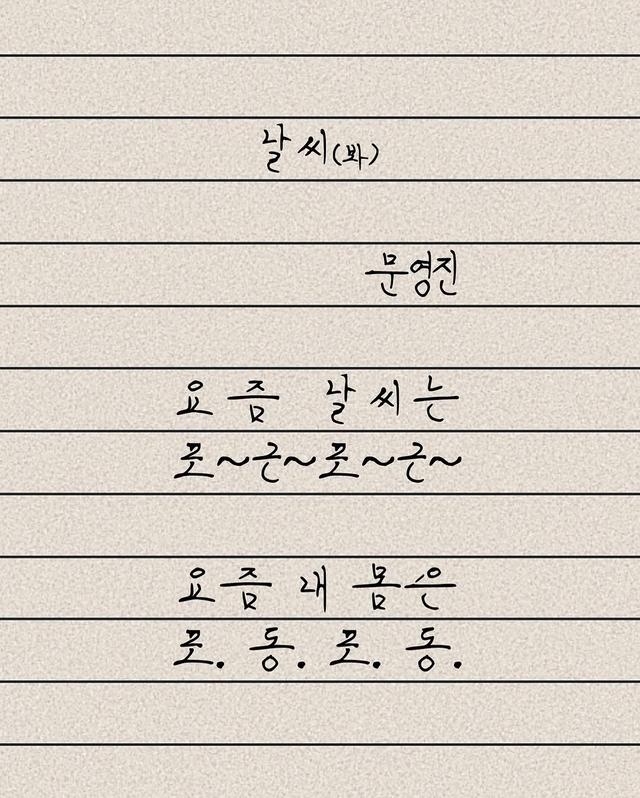 날씨(봐)
문영진
요즘 날씨는
포~근~포~근~
요즘 내 몸은
포. 동. 포. 동.